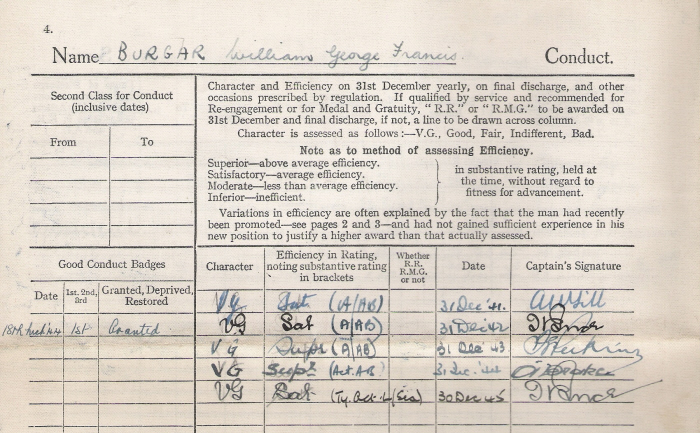 4.
Name BURGAR William George Francis. Conduct.
Second Class for Conduct
(inclusive dates)
From To
Character and Efficiency on 31st December yearly, on final discharge, and other
occasions prescribed by regulation. If qualified by service and recommended for
Re-engagement or for Medal and Gratuity, "R.R." or "R.M.G." to be awarded on
31st December and final discharge, if not, a line to be drawn across column.
Character is assessed as follows:—V.G., Good, Fair, Indifferent, Bad.
Note as to method of assessing Efficiency.
Superior—above average efficiency.
Satisfactory—average efficiency.
Moderate—less than average efficiency.
Inferior—inefficient.
in substantive rating, held at
the time, without regard to
fitness for advancement.
Variations in efficiency are often explained by the fact that the man had recently
been promoted—see pages 2 and 3—and had not gained sufficient experience in his
new position to justify a higher award than that actually assessed.
Good Conduct Badges
Date 1st, 2nd, 3rd Granted, Deprived, Restored
1st Granted
Character Efficiency in Rating, noting substantive rating in brackets Whether R.R. R.M.G. or not Date Captain's Signature
VG Sat (A/AB) 31 Dec '41.
VG Sat (A/AB) 31 Dec 42
VG Supr (A/AB) 31 Dec '43
VG Supr (Act.AB) 31 Dec. '44
VG Sat (Ty. Act. L/Sea) 30 Dec 45